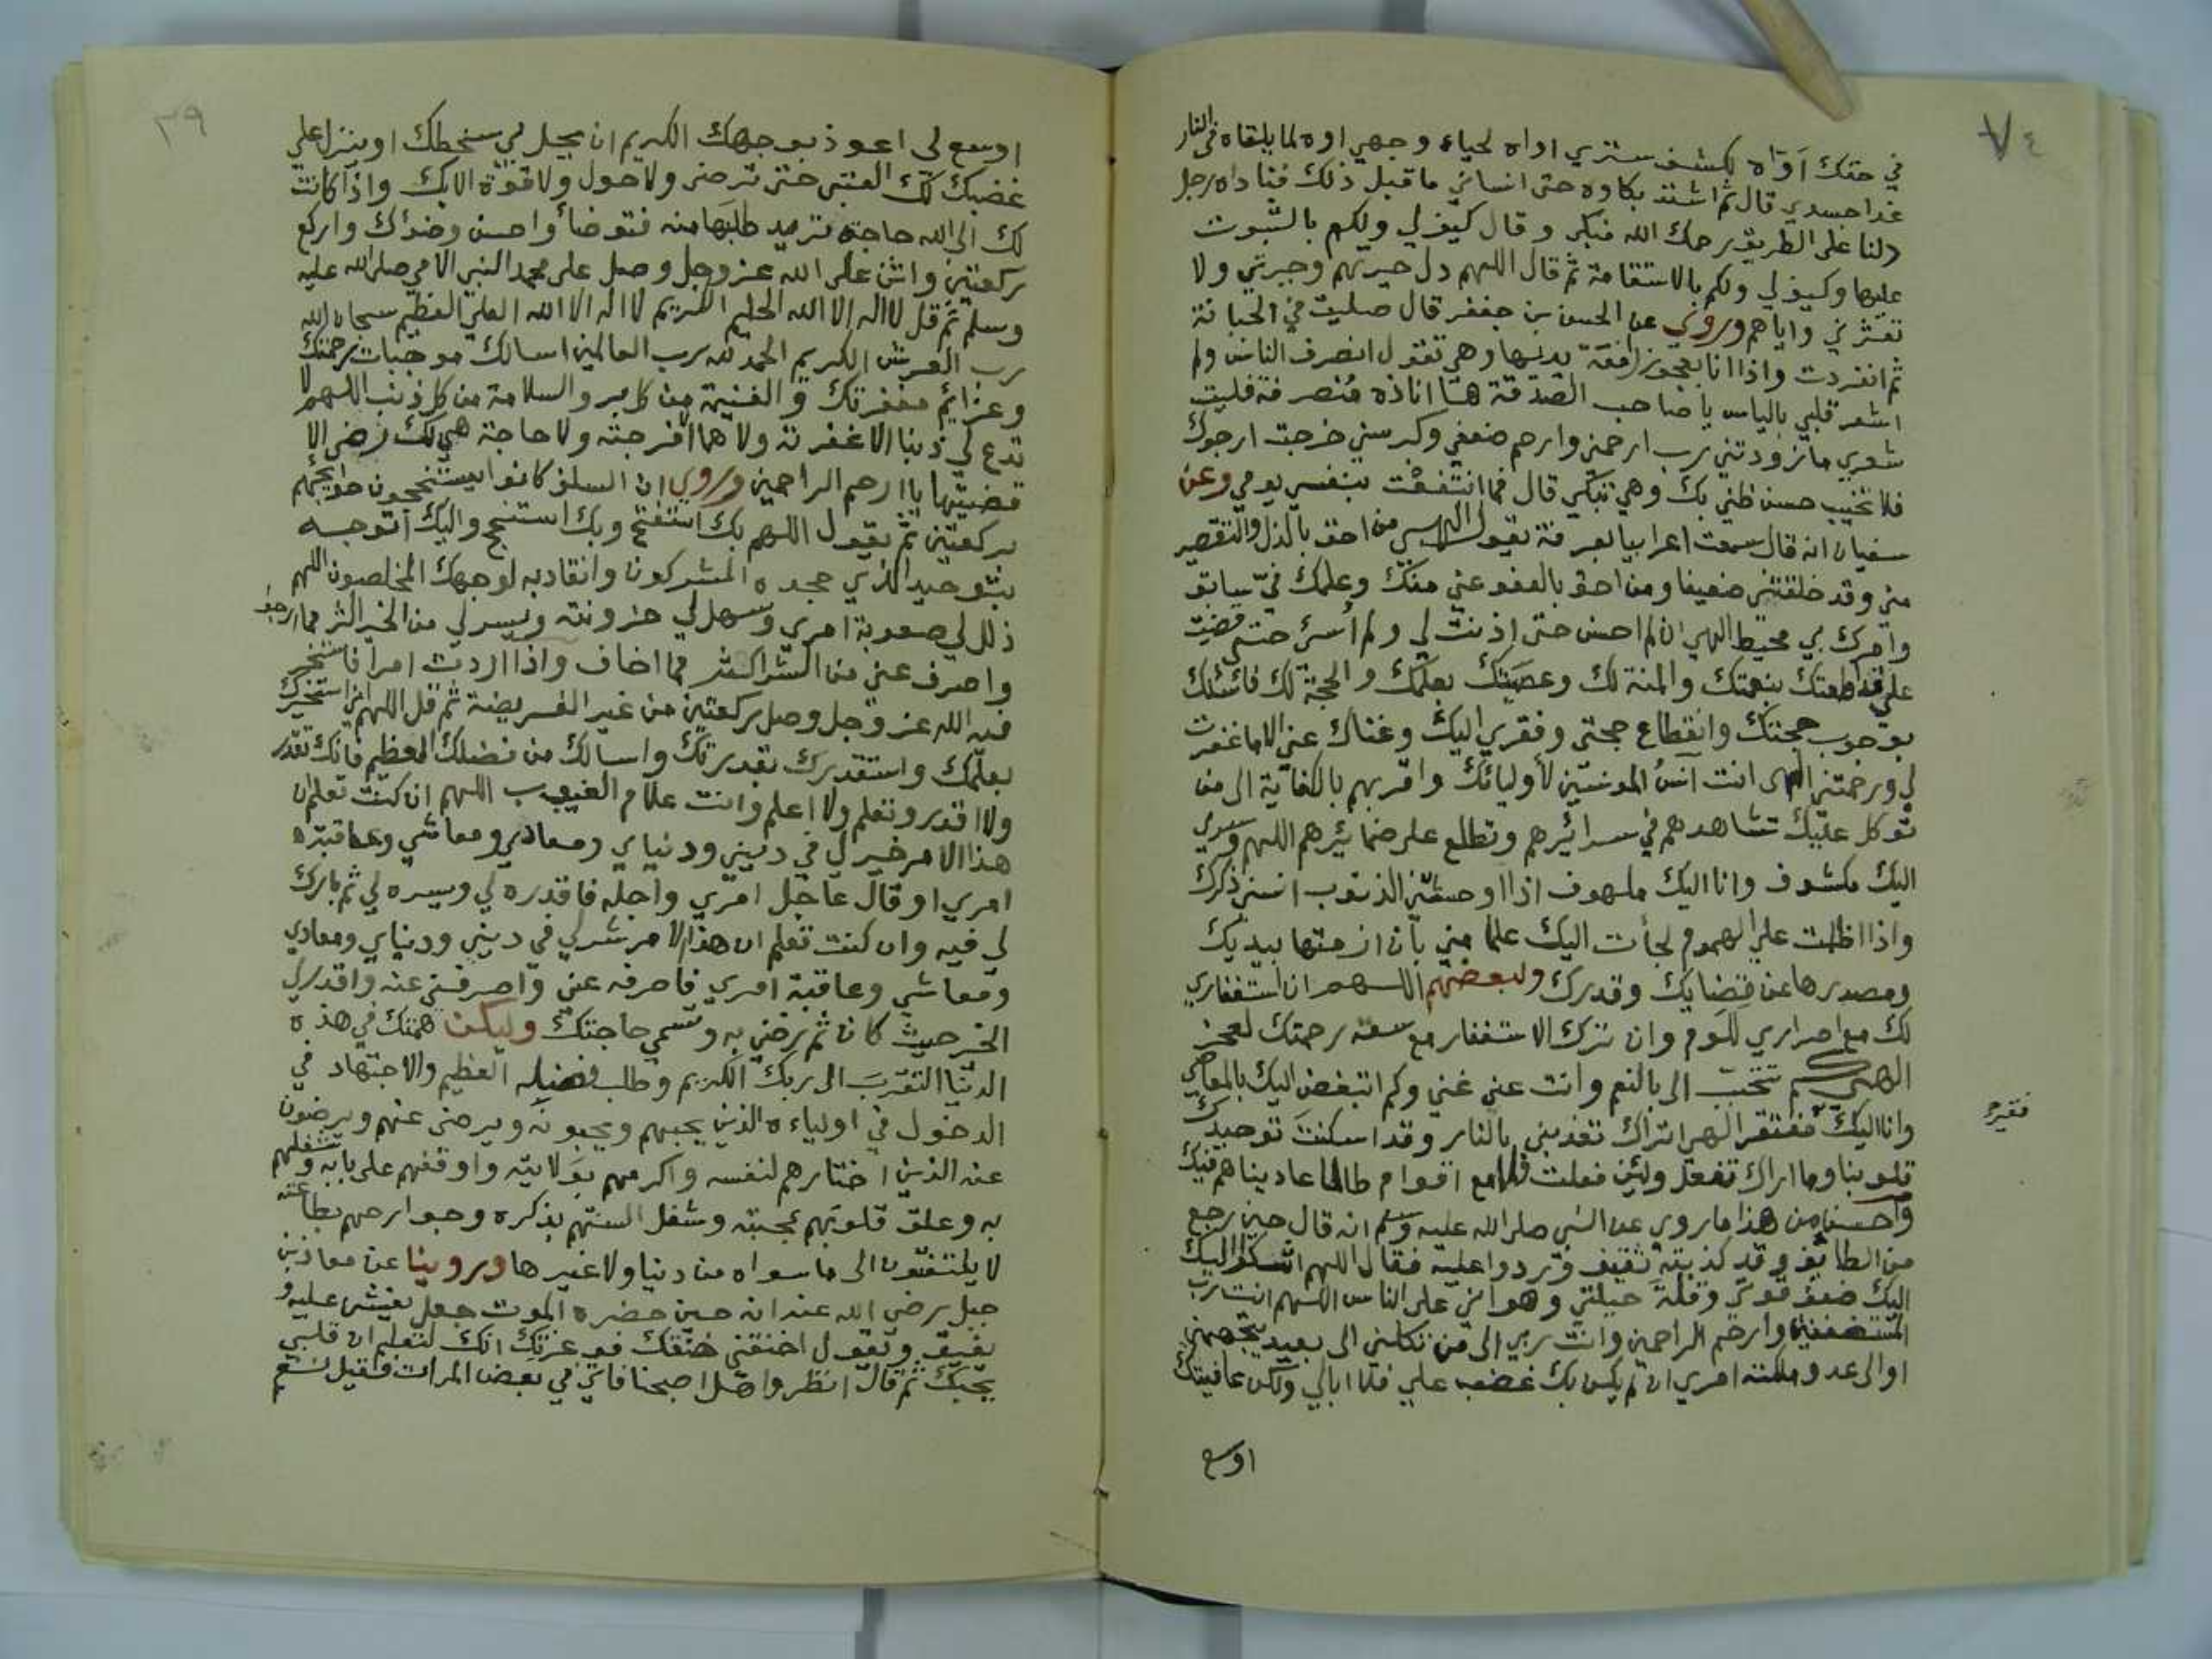 ٧٤
في حقك آوّاه لكشف ستري اواه لحياء وجهي اوه لما يلقاه في النار
غدا جسدي قال ثم اشتد بكاوه حتى انساني ما قبل ذلك فناداه رجل
دلنا على الطريق رحمك الله فبكى وقال كيف لي ولكم بالثبوت
عليها وكيف لي ولكم بالاستقامة ثم قال اللهم دل حيرتهم وحيرتي ولا
تعثرني واياهم وروي عن الحسن بن جعفر قال صليت في الجبانة
ثم انفردت واذا انا بعجوز رافعة يديها وهي تقول انصرف الناس ولم
اشعر قلبي بالياس يا صاحب الصدقة ها انا ذه منصرفة فليت
شعري ما زودتني رب ارحمني وارحم ضعفي وكبر سني خرجت ارجوك
فلا تخيب حسن ظني بك وهي تبكي قال فما انتفعت بنفسي يومي وعن
سفيان انه قال سمعت اعرابيا بعرفة يقول الهي من احق بالذل والتقصير
مني وقد خلقتني ضعيفا ومن احق بالعفو عني منك وعلمك فيّ سابق
وامرك بي محيط الهي ان لم احسن حتى اذنت لي ولم أسئ حتى قضيت
علي قد اطعتك بنعمتك والمنة لك وعصيتك بعلمك والحجة لك فاسئلك
بوجوب حجتك وانقطاع حجتي وفقري اليك وغناك عني الا ما غفرت
لي ورحمتني الهي انت آنسُ المونسين لأوليائك واقربهم بالكفاية الى من
توكل عليك تشاهدهم في سرائرهم وتطلع على ضمائرهم اللهم وسري
اليك مكشوف وانا اليك ملهوف اذا اوحشتني الذنوب انسني ذكرك
واذا اظلمت علي الهموم لجأت اليك علما مني بأن ازمتها بيديك
ومصدرها عن قضايك وقدرك ولبعضهم اللهم ان استغفاري
لك مع اصراري للوم وان تركي الاستغفار مع سعة رحمتك لعجز
الهي كم تتحبب الي بالنعم وانت عني غني وكم اتبغض اليك بالمعاصي
وانا اليك مفتقر الهي اتراك تعذبني بالنار وقد اسكنت توحيدك
فقير
قلوبنا وما اراك تفعل ولئن فعلت فمع اقوام طالما عاديناهم فيك
واحسن من هذا ما روي عن النبي صلى الله عليه وسلم انه قال حين رجع
من الطايف وقد كذبته ثقيف وردوا عليه فقال اللهم اشكوا اليك
اليك ضعف قوتي وقلة حيلتي وهواني على الناس اللهم انت رب
المستضعفين وارحم الراحمين وانت ربي الى من تكلني الى بعيد يتجهمني
او الى عدو ملكته امري ان لم يكن بك غضب علي فلا ابالي ولكن عافيتك
اوسع
٣٩
اوسع لي اعوذ بوجهك الكريم ان يحل لي سخطك او ينزل علي
غضبك لك العتبى حتى ترضى ولا حول ولا قوة الا بك واذا كانت
لك الى الله حاجة تريد طلبها منه فتوضأ واحسن وضؤك واركع
ركعتين واثن على الله عز وجل وصل على محمد النبي الامي صلى الله عليه
وسلم ثم قل لا اله الا الله الحليم الكريم لا اله الا الله العلي العظيم سبحان الله
رب العرش الكريم الحمد لله رب العالمين اسالك موجبات رحمتك
وعزائم مغفرتك والغنيمة من كل بر والسلامة من كل ذنب اللهم لا
تدع لي ذنبا الا غفرته ولا هما الا فرجته ولا حاجة هي لك رضى الا
قضيتها يا ارحم الراحمين وروي ان السلف كانوا يستنجحون حوايجهم
بركعتين ثم يقول اللهم بك استفتح وبك استنجح واليك اتوجه
بتوحيد الذي جحده المشركون وانقاد به لوجهك المخلصون اللهم
ذلل لي صعوبة امري وسهل لي حزونته ويسر لي من الخير اكثر مما ارجو
واصرف عني من الشر اكثر مما اخاف واذا اردت امرا فاستخر
فيه الله عز وجل وصل ركعتين من غير الفريضة ثم قل اللهم اني استخيرك
بعلمك واستقدرك بقدرتك واسالك من فضلك العظيم فانك تقدر
ولا اقدر وتعلم ولا اعلم وانت علام الغيوب اللهم ان كنت تعلم ان
هذا الامر خير لي في ديني ودنياي ومعادي ومعاشي وعاقبة
امري او قال عاجل امري واجله فاقدره لي ويسره لي ثم بارك
لي فيه وان كنت تعلم ان هذا الامر شر لي في ديني ودنياي ومعادي
ومعاشي وعاقبة امري فاصرفه عني واصرفني عنه واقدر لي
الخير حيث كان ثم رضني به وتسمي حاجتك وليكن همتك في هذه
الدنيا التقرب الى ربك الكريم وطلب فضله العظيم والاجتهاد في
الدخول في اولياءه الذين يحبهم ويحبونه ويرضى عنهم ويرضون
عنه الذين اختارهم لنفسه واكرمهم بولايته واوقفهم على بابه وشغلهم
به وعلق قلوبهم بمحبته وشغل السنتهم بذكره وجوارحهم بطاعته
لا يلتفتون الى ما سواه من دنيا ولا غيرها وروينا عن معاذ بن
جبل رضي الله عنه انه حين حضره الموت جعل يغشى عليه و
يفيق ويقول اخنقني خنقك فوعزتك انك لتعلم ان قلبي
يحبك ثم قال انظروا هل اصبحنا فاتي في بعض المرات فقيل نعم